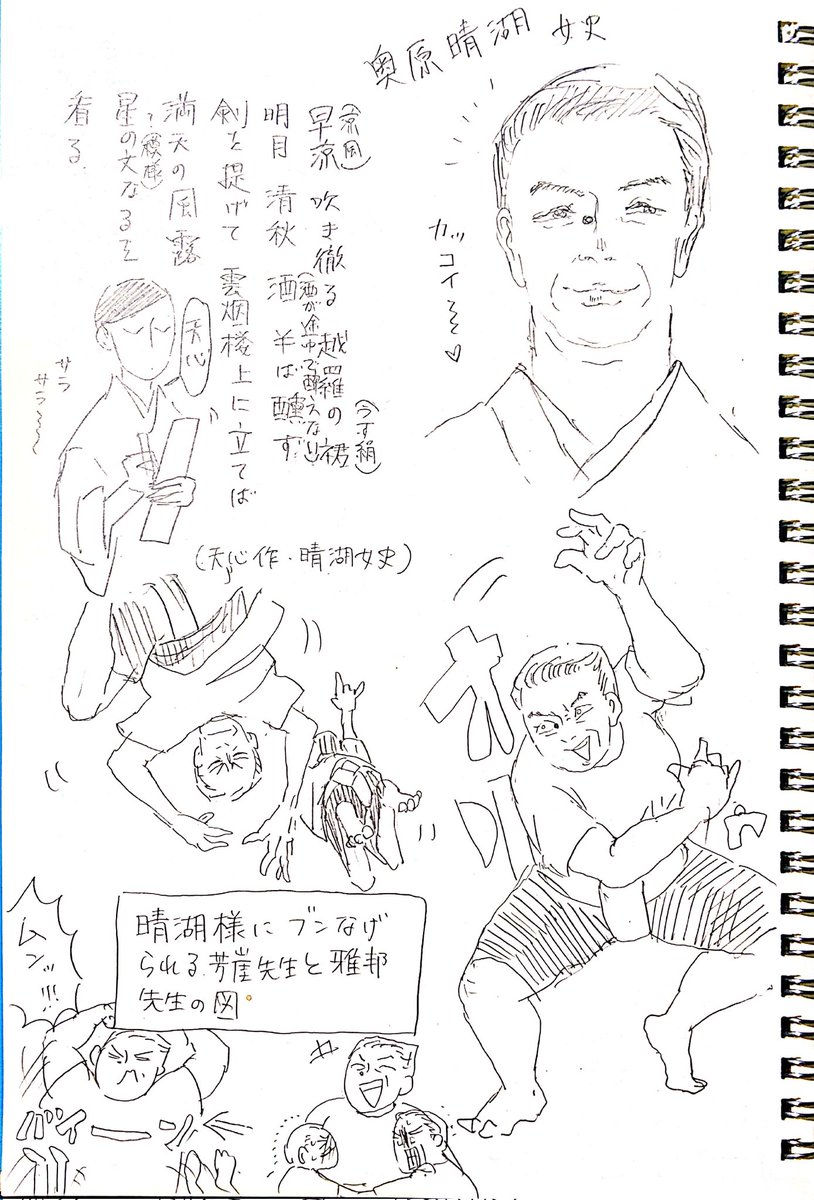 奥原晴湖 女史
早涼 吹き徹る 越羅の裙
(涼風)
(うす絹)
明月 清秋 酒 半ば醺ず
(酒が途中で醺えない)
剣を提げて 雲烟楼上に立てば
満天の風露
星の文なるを
(?模様)
看る.
天心
サラ
サラ〜〜
(天心作・晴湖女史)
晴湖様に ブンなげ
られる芳崖先生と雅邦
先生の図。
ムンッ!!!
バィーン